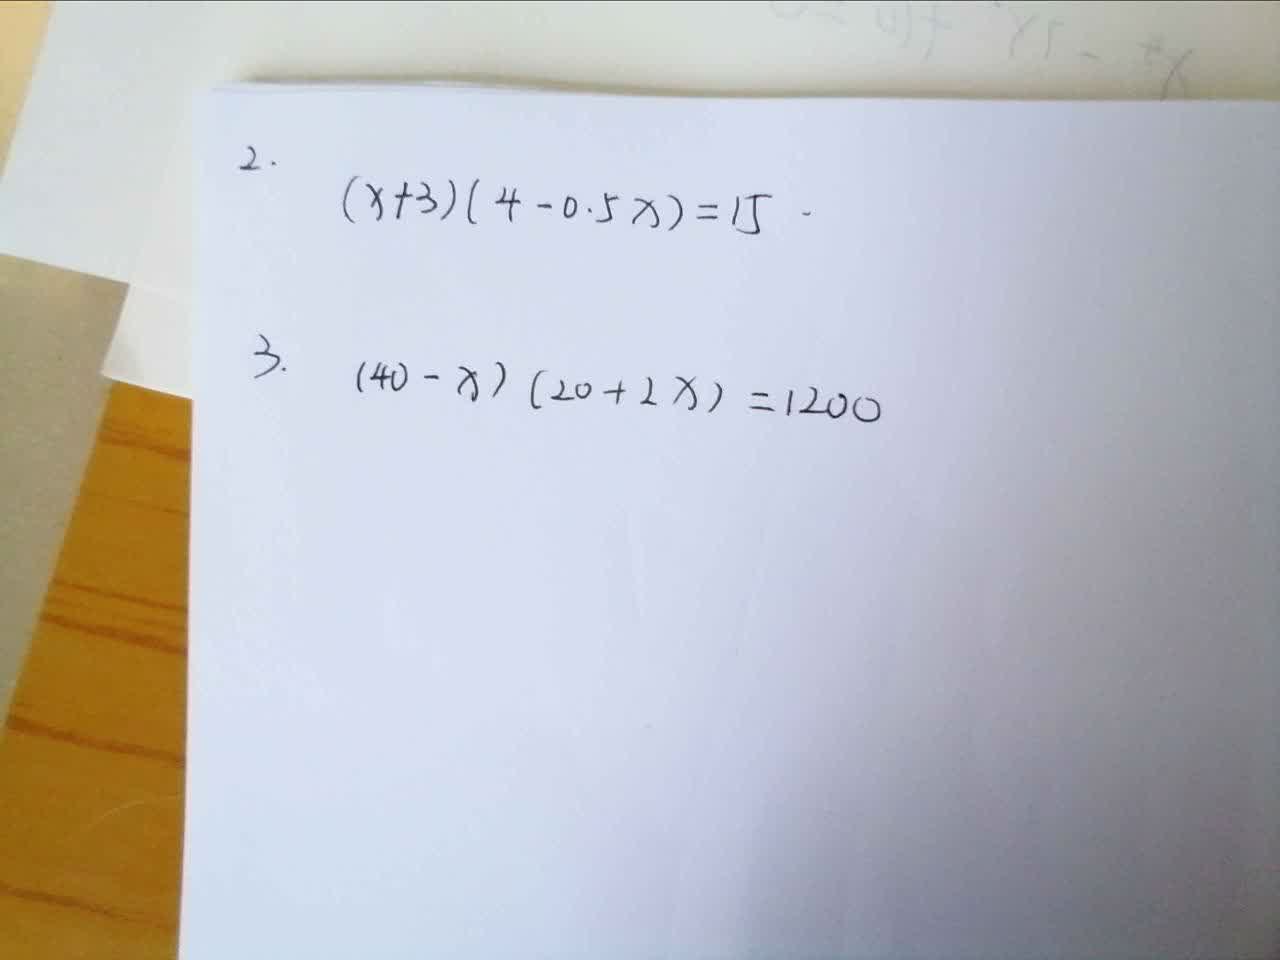 2.
(x+3)(4-0.5x)=15
3.
(40-x)(20+2x)=1200